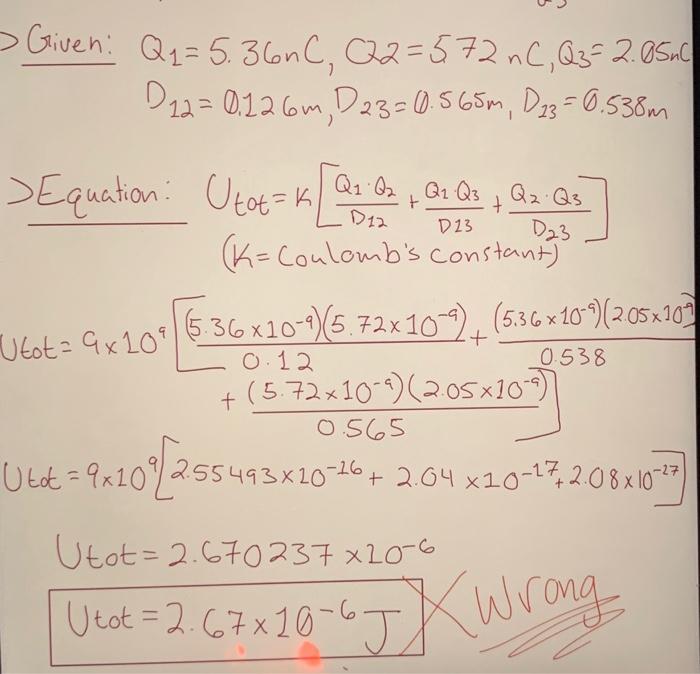 > Given: Q1 = 5.36nC, Q2 = 572 nC, Q3 = 2.05nC
D12 = 0.126m, D23 = 0.565m, D13 = 0.538m
> Equation: Utot = K [ Q1·Q2/D12 + Q1·Q3/D13 + Q2·Q3/D23 ]
(K = Coulomb's constant)
Utot = 9x10⁹ [ (5.36x10⁻⁹)(5.72x10⁻⁹)/0.12 + (5.36x10⁻⁹)(2.05x10⁻⁹)/0.538
+ (5.72x10⁻⁹)(2.05x10⁻⁹)/0.565 ]
Utot = 9x10⁹ [2.55493x10⁻¹⁶ + 2.04x10⁻¹⁷ + 2.08x10⁻¹⁷]
Utot = 2.670237 x10⁻⁶
Utot = 2.67x10⁻⁶ J X Wrong